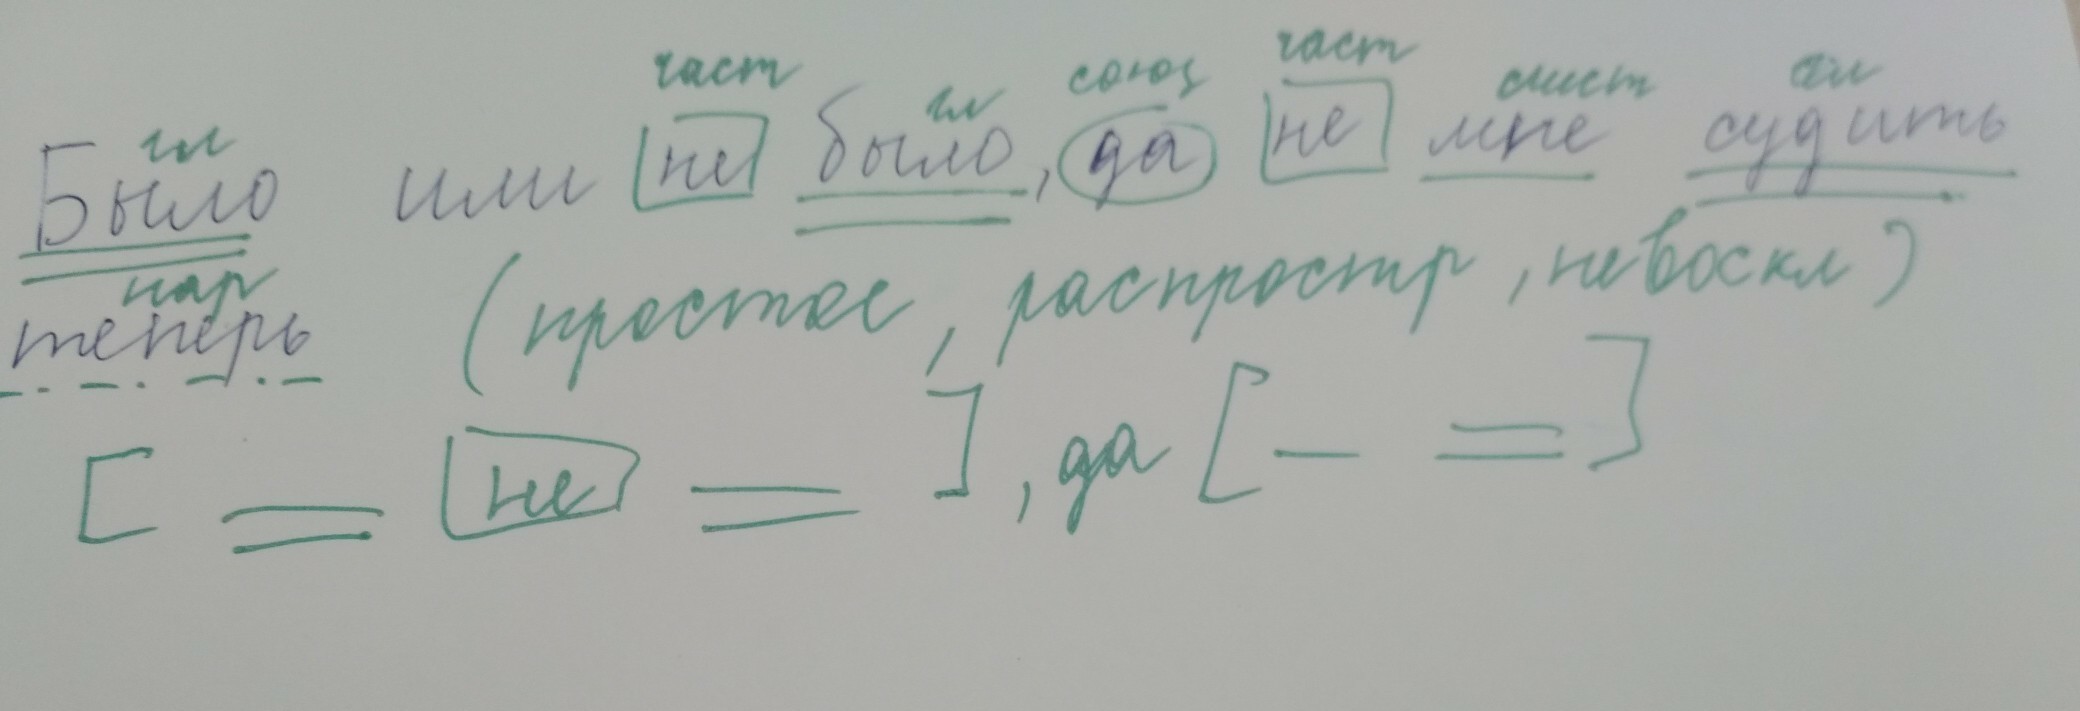 част гл союз част мест гл
гл
Было или не было, да не мне судить
нар
теперь (простое, распростр, невоскл)
[ не ], да [ — = ]